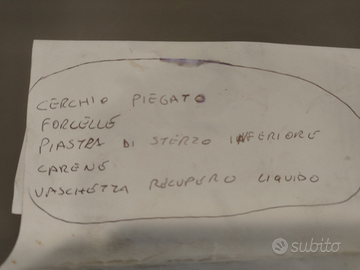 CERCHIO PIEGATO
FORCELLE
PIASTRA DI STERZO INFERIORE
CARENE
VASCHETTA RECUPERO LIQUIDO
subito